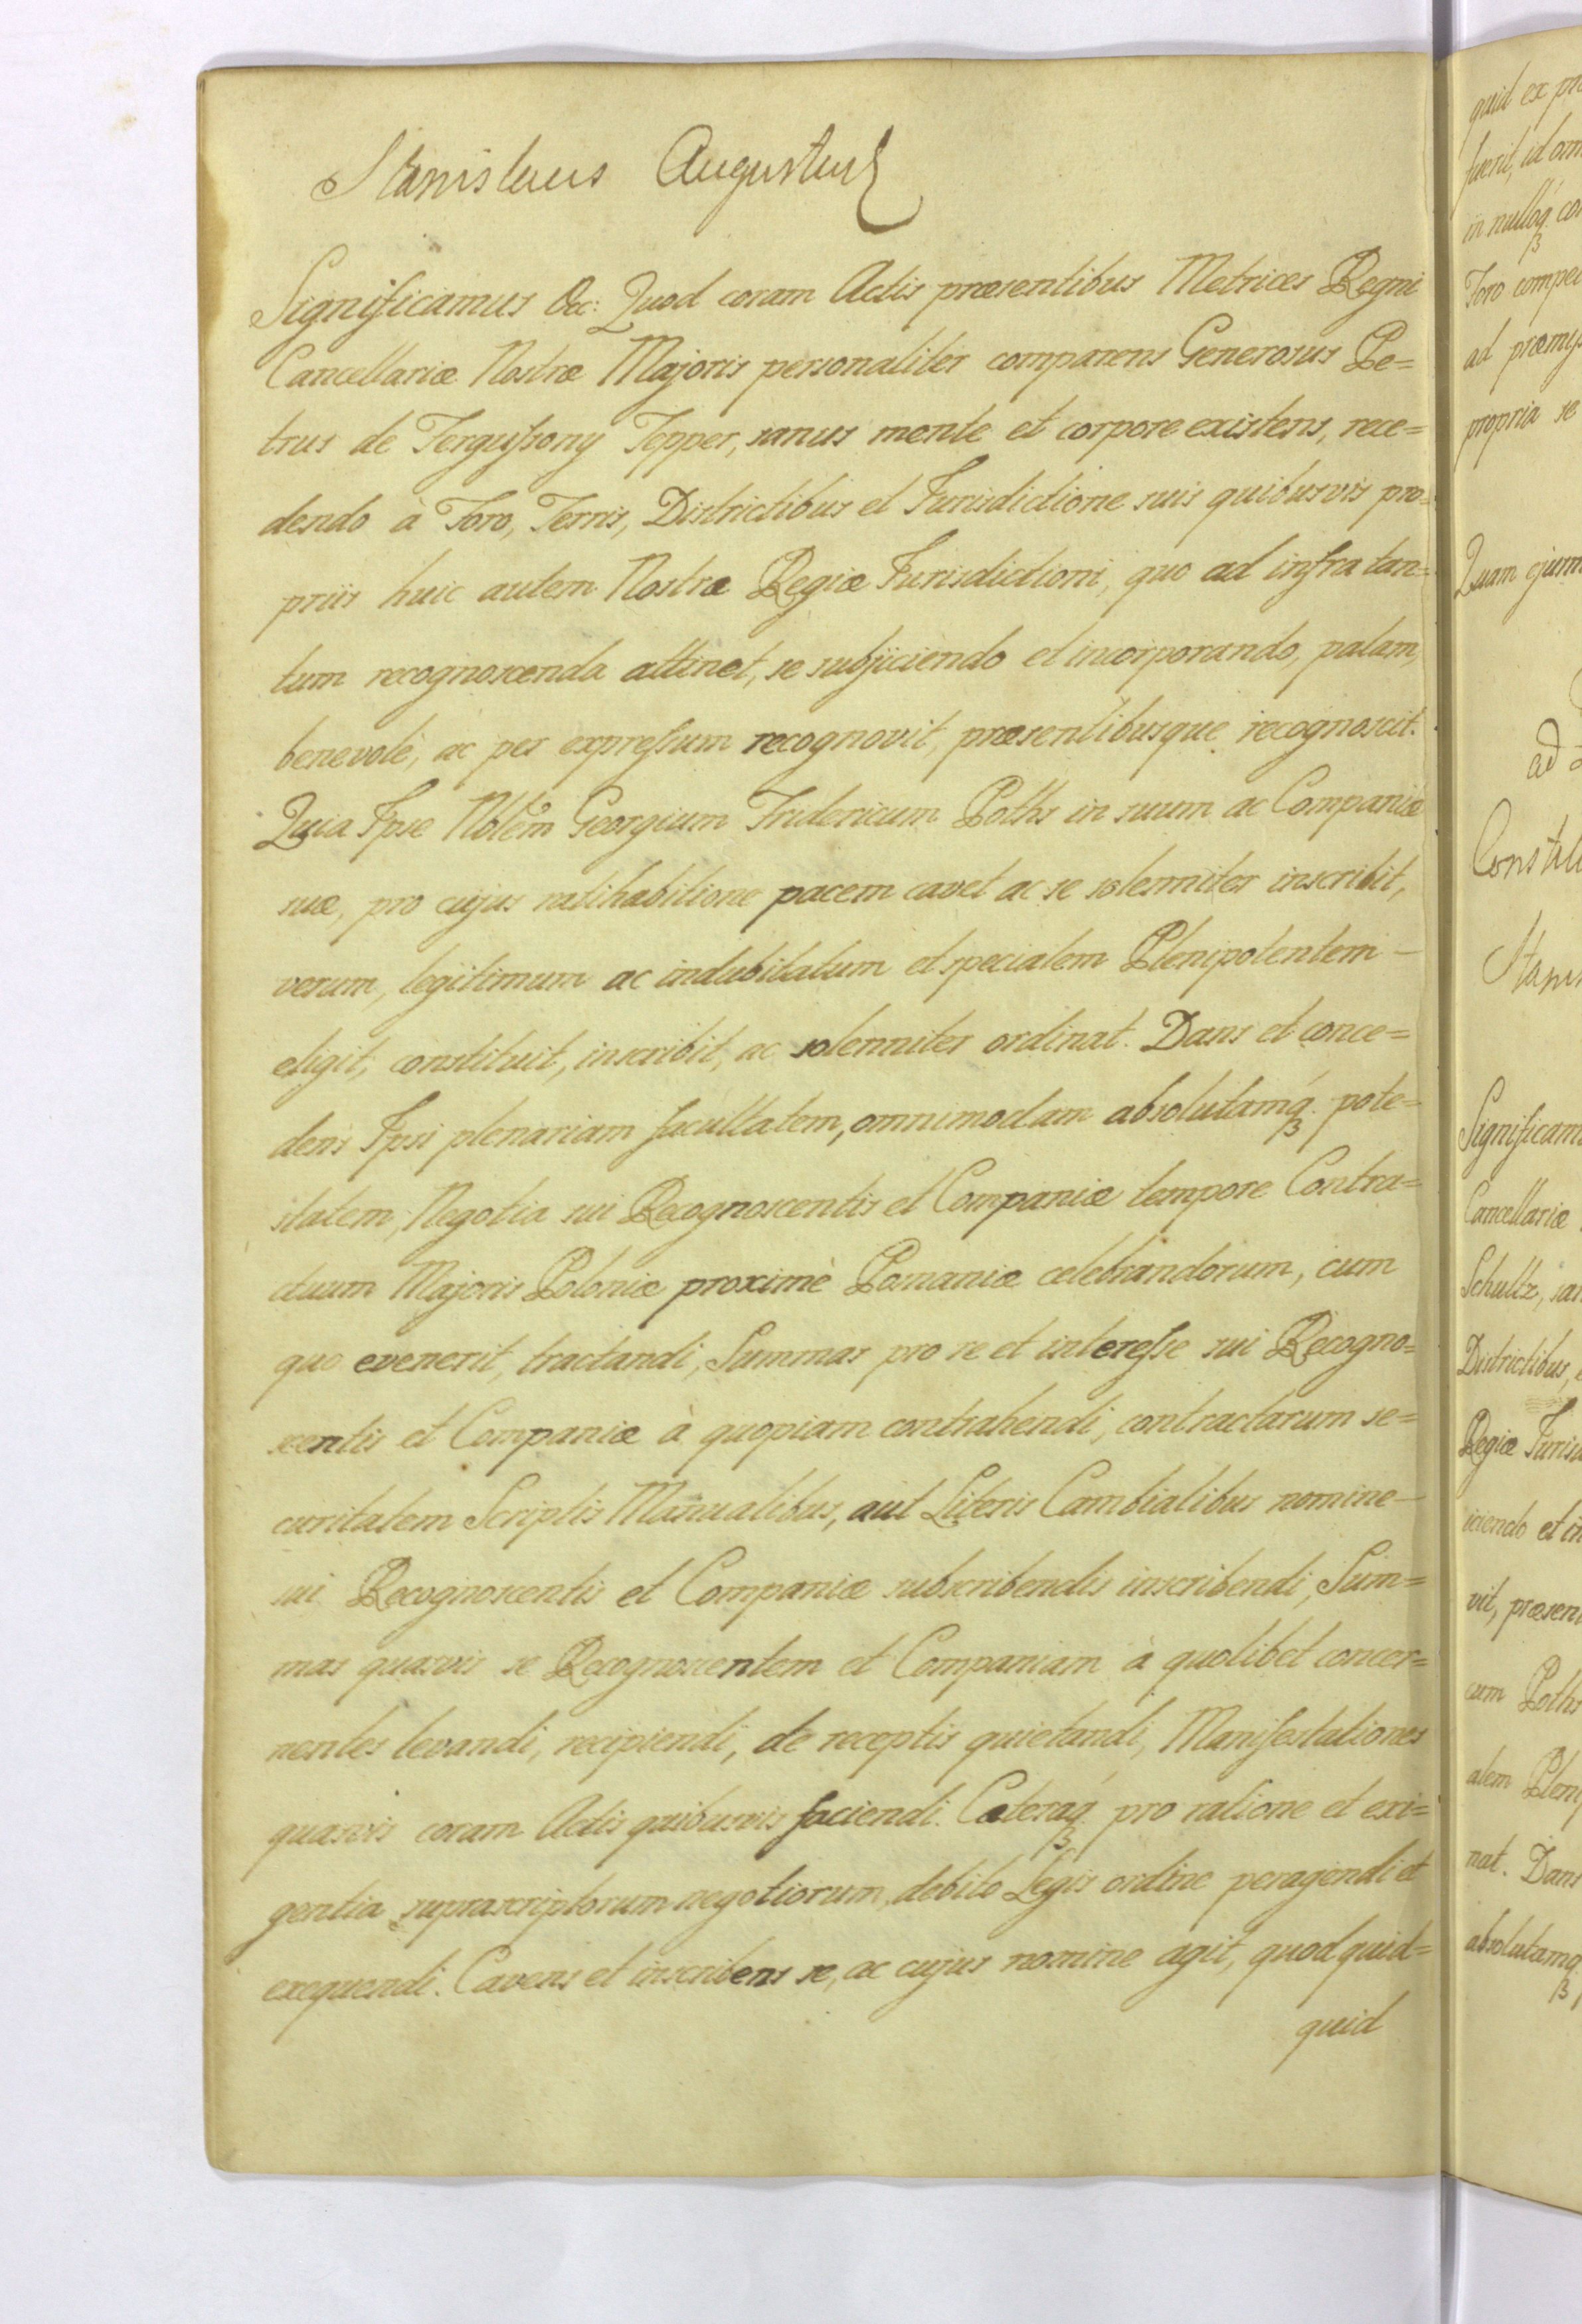 Stanislaus Augustus
Significamus &c: Quod coram Actis præsentibus Metrices Regni
Cancellariæ Nostræ Majoris personaliter comparens Generosus Pe=
trus de Fergussony Tepper, sanus mente et corpore existens, rece=
dendo à Foro, Terris, Districtibus et Jurisdictione suis quibusvis pro=
priis huic autem Nostræ Regiæ Jurisdictioni, quo ad infra tan=
tum recognoscenda attinet, se subjiciendo et incorporando, palam,
benevolè, ac per expressum recognovit, præsentibusque recognoscit.
Quia Ipse Nobłem Georgium Fridericum Poths in suum ac Companiæ
suæ, pro cujus ratihabitione pacem cavet ac se solenniter inscribit,
verum, legitimum ac indubitatum et specialem Plenipotentem –
eligit, constituit, inscribit, ac solenniter ordinat. Dans et conce=
dens Ipsi plenariam facultatem, omnimodam absolutamq́ʒ pote=
statem, Negotia sui Recognoscentis et Companiæ tempore Contra=
ctuum Majoris Poloniæ proximè Posnaniæ celebrandorum, cum
quo evenerit, tractandi, Summas pro re et interesse sui Recogno=
scentis et Companiæ à quopiam contrahendi, contractarum se=
curitatem Scriptis Manualibus, aut Literis Cambialibus nomine –
sui Recognoscentis et Companiæ subscribendis inscribendi, Sum=
mas quasvis se Recognoscentem et Companiam à quolibet concer=
nentes levandi, recipiendi, de receptis quietandi, Manifestationes
quasvis coram Actis quibusvis faciendi. Cæteraq́ʒ pro ratione et exi=
gentia suprascriptorum negotiorum, debito Legis ordine peragendi et
exequendi. Cavens et inscribens se, ac cujus nomine agit, quod quid=
quid
quid ex
fuerit, id
in nulloq́ʒ
Foro
ad
propria se
Quam
ad
Significam
Cancellariæ
Schultz,
Districtibus,
Regiæ
iciendo et
vit,
cum Poths
alem
nat. Dans
absolutamqʒ